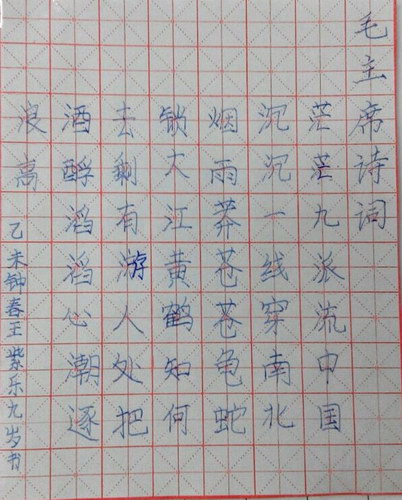 毛主席诗词
茫茫九派流中国
沉沉一线穿南北
烟雨莽苍苍龟蛇
锁大江黄鹤知何
去剩有游人处把
酒酹滔滔心潮逐
浪高
乙未钟春王紫乐九岁书